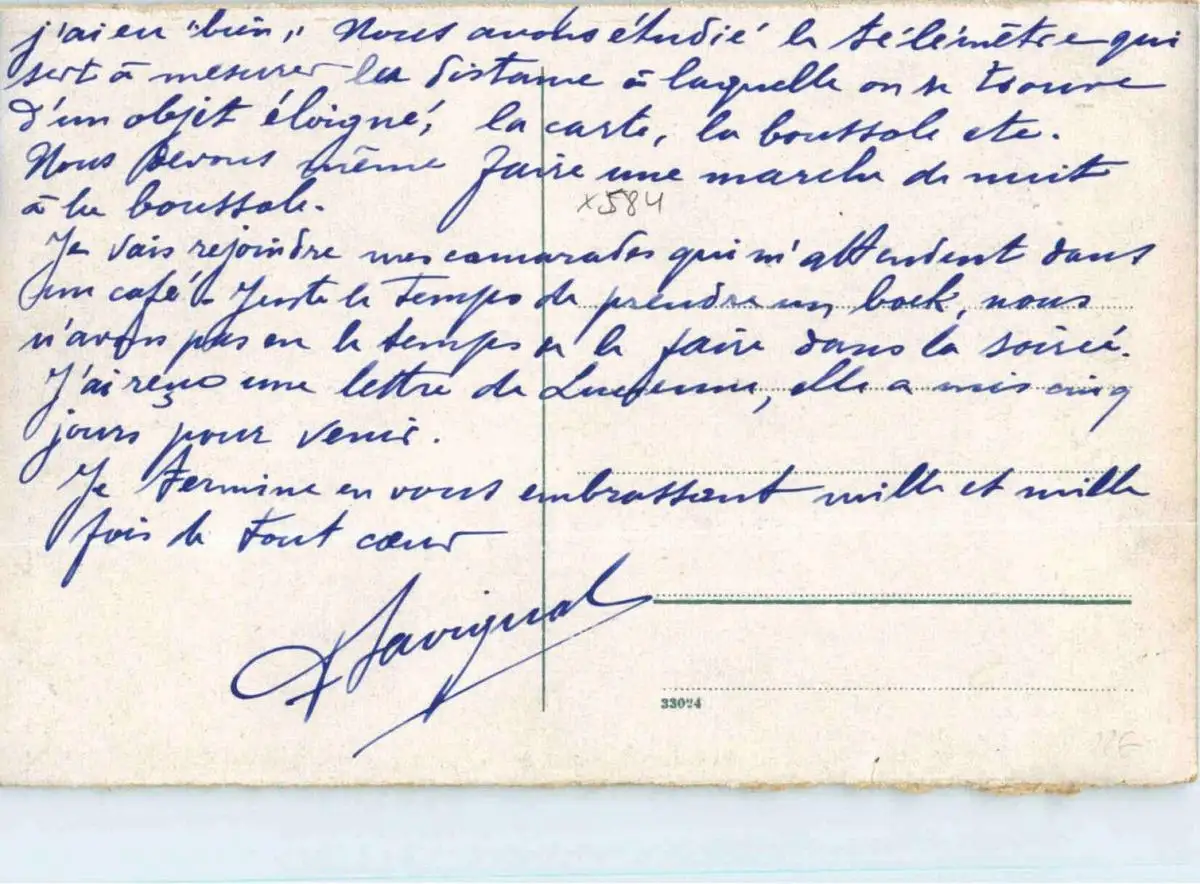 j'ai eu "bien" Nous avons étudié le télémètre qui
sert à mesurer la distance à laquelle on se trouve
d'un objet éloigné, la carte, la boussole etc.
Nous devons même faire une marche de nuit
à la boussole.
x584
Je vais rejoindre mes camarades qui m'attendent dans
un café. Juste le temps de prendre un bock, nous
n'avons pas eu le temps de le faire dans la soirée.
J'ai reçu une lettre de Lucienne, elle a mis cinq
jours pour venir.
Je termine en vous embrassant mille et mille
fois de tout cœur
Savignal
33024